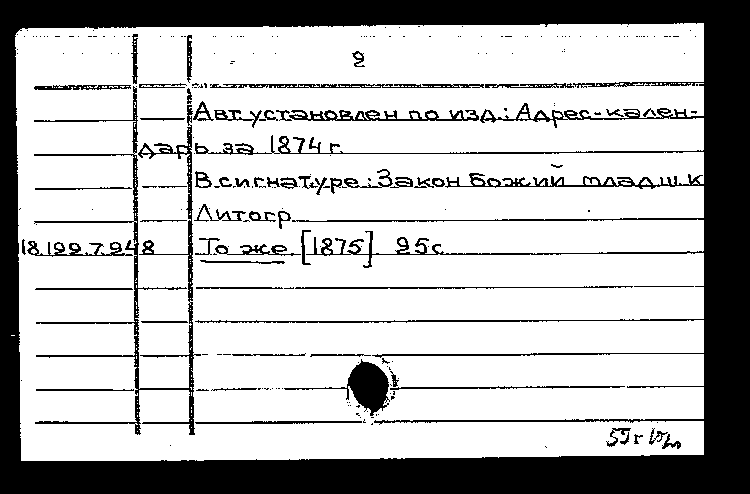 2
Авт. установлен по изд.: Адрес-кален-
дарь за 1874 г.
В сигнатуре: Закон Божий младш. к
Литогр.
18.199.7.948 То же. [1875]. 95 с.